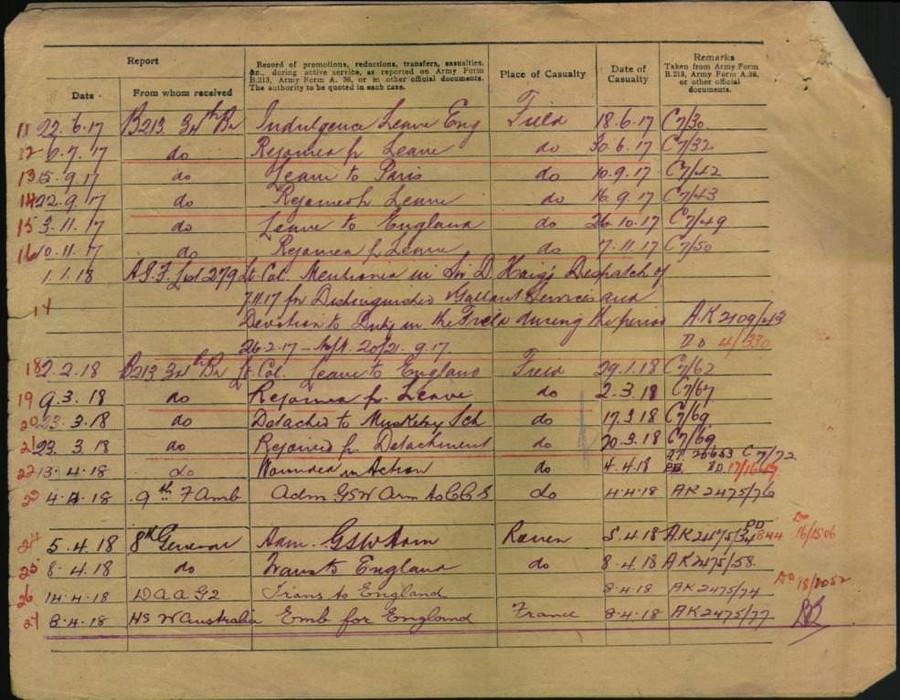 Report
Record of promotions, reductions, transfers, casualties,
&c., during active service, as reported on Army Form
B.213, Army Form A. 36, or in other official documents.
The authority to be quoted in each case.
Place of Casualty
Date of
Casualty
Remarks
Taken from Army Form
B.213, Army Form A.36,
or other official
documents.
Date
From whom received
11 22.6.17 B213. 34th Bn Indulgence Leave Eng Field 18.6.17 C7/30
12 6.7.17 do Rejoined fr Leave do 30.6.17 C7/32
13 5.9.17 do Leave to Paris do 10.9.17 C7/42
14 22.9.17 do Rejoined fr Leave do 16.9.17 C7/43
15 3.11.17 do Leave to England do 26.10.17 C7/49
16 10.11.17 do Rejoined fr Leave do 7.11.17 C7/50
1.1.18 279 Lt. Col. Mentioned in Sir D. Haig's Despatch of
7.11.17 for Distinguished & Gallant Services and
17 Devotion to Duty in the Field during the period AK2109/43
26.2.17 - 20/21.9.17 DO 4/330
18 2.2.18 B213 34th Bn Lt. Col. Leave to England Field 29.1.18 C7/62
19 9.3.18 do Rejoined fr. Leave do 2.3.18 C7/67
20 23.3.18 do Detached to Musketry Sch do 17.3.18 C7/69
21 23.3.18 do Rejoined fr Detachment do 20.3.18 C7/69
22 13.4.18 do Wounded in Action do 4.4.18 C7/72
23 4.4.18 9th F Amb Adm GSW Arm to CCS do 4.4.18 AK2475/76
24 5.4.18 8th General Adm. GSW Arm Rouen 5.4.18
25 8.4.18 do Trans to England do 8.4.18 AK2475/58.
26 14.4.18 DAAG2 Trans to England 8.4.18 AK2475/74
27 8.4.18 HS W Australia Emb for England France 8.4.18 AK2475/77